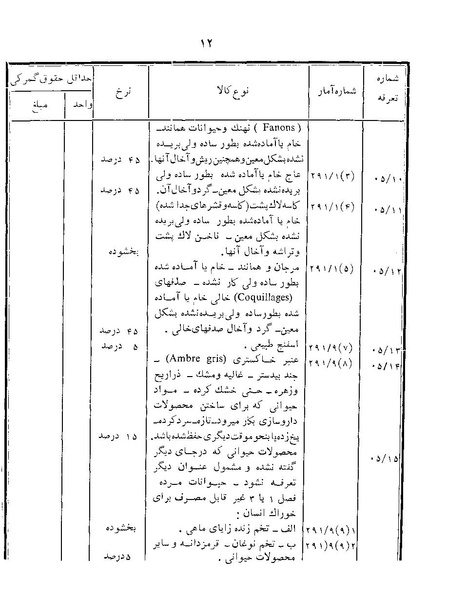 ۱۲
شماره تعرفه | شماره آمار | نوع کالا | نرخ | حداقل حقوق گمرکی
واحد | مبلغ
( Fanons ) نهنگ وحیوانات همانند ـ
خام یا آماده شده بطور ساده ولی بریده
نشده بشکل معین و همچنین ریش و آخال آنها. | ۴۵ درصد
۰۵/۱۰ | ۲۹۱/۱(۳) | عاج خام یا آماده شده بطور ساده ولی
بریده نشده بشکل معین ـ گرد و آخال آن. | ۴۵ درصد
۰۵/۱۱ | ۲۹۱/۱(۴) | کاسه لاک پشت (کاسه و قشرهای جدا شده)
خام یا آماده شده بطور ساده ولی بریده
نشده بشکل معین ـ ناخن لاک پشت
وتراشه و آخال آنها. | بخشوده
۰۵/۱۲ | ۲۹۱/۱(۵) | مرجان و همانند ـ خام یا آماده شده
بطور ساده ولی کار نشده ـ صدفهای
(Coquillages) خالی خام یا آماده
شده بطور ساده ولی بریده نشده بشکل
معین ـ گرد و آخال صدفهای خالی . | ۴۵ درصد
۰۵/۱۳ | ۲۹۱/۹(۷) | اسفنج طبیعی . | ۵ درصد
۰۵/۱۴ | ۲۹۱/۹(۸) | عنبر خاکستری (Ambre gris) ـ
جند بیدستر ـ غالیه ومشک ـ ذراریح
وزهره ـ حتی خشک کرده ـ مواد
حیوانی که برای ساختن محصولات
داروسازی بکار میرود ـ تازه ـ سرد کرده ـ
یخ زده یا بنحو موقت دیگری حفظ شده باشد. | ۱۵ درصد
۰۵/۱۵ | محصولات حیوانی که درجای دیگر
گفته نشده و مشمول عنوان دیگر
تعرفه نشود ـ حیوانات مرده
فصل ۱ یا ۳ غیر قابل مصرف برای
خوراک انسان :
۲۹۱/۹(۹)۱ | الف ـ تخم زنده زایای ماهی . | بخشوده
۲۹۱/۹(۹)۲ | ب ـ تخم نوغان ـ قرمزدانه و سایر
محصولات حیوانی . | ۵درصد